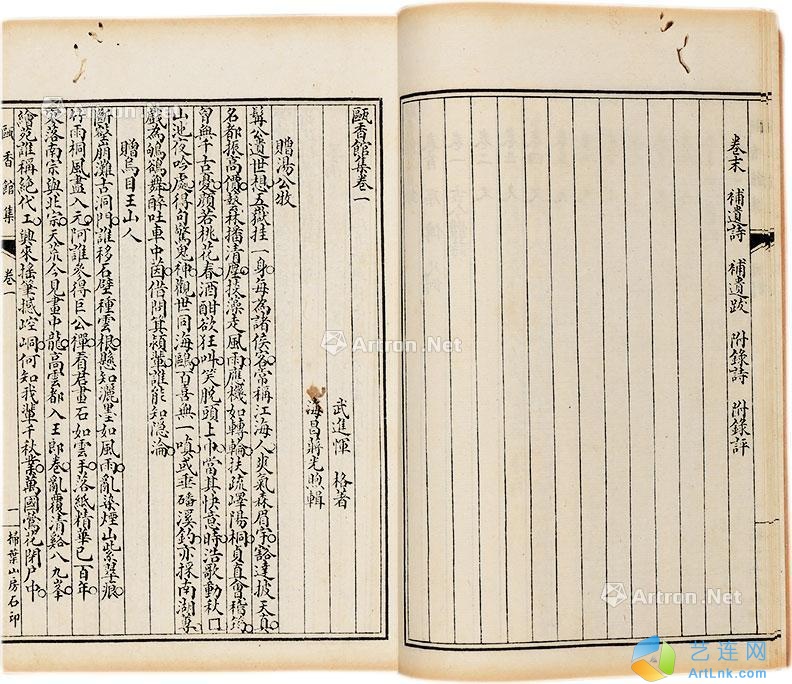 卷末 補遺詩 補遺跋 附錄詩 附錄評
甌香館集卷一
武進惲 格著
海昌蔣光煦輯
贈湯公牧
髯公遺世想五嶽挂一身每為諸侯客常稱江海人爽氣森眉宇豁達披天真
名都振高價清塵藻走風雨應機如轉輪扶疏嶧陽桐貞直會稽筠
曾無千古憂顏若桃花春酒酣欲狂叫笑脫頭上巾當其快意時浩歌動秋
山池夜吟處得句驚鬼神觀世同海鷗百喜無一嗔或垂磻溪釣亦採南湖蓴
戲為鴝鵒舞醉吐車中茵借問箕潁輩誰能知隱淪
贈烏目王山人
斷壑崩灘古洞門誰移石壁種雲根懸知灑墨如風雨亂染煙山紫翠痕
竹雨桐風盡入元阿誰參得巨公禪看君畫石如雲手落紙精華已百年
寥落南宗與北宗天流今見畫中龍高雲都入王郎卷亂覆清谿八九峯
繪苑誰稱絕代工興來搖筆撼崆峒何知我輩千秋業萬國鶯花閉戶中
甌香館集 卷一 一 掃葉山房石印
Artron.Net
Artron.Net
Artron.Net
艺连网
ArtLnk.com